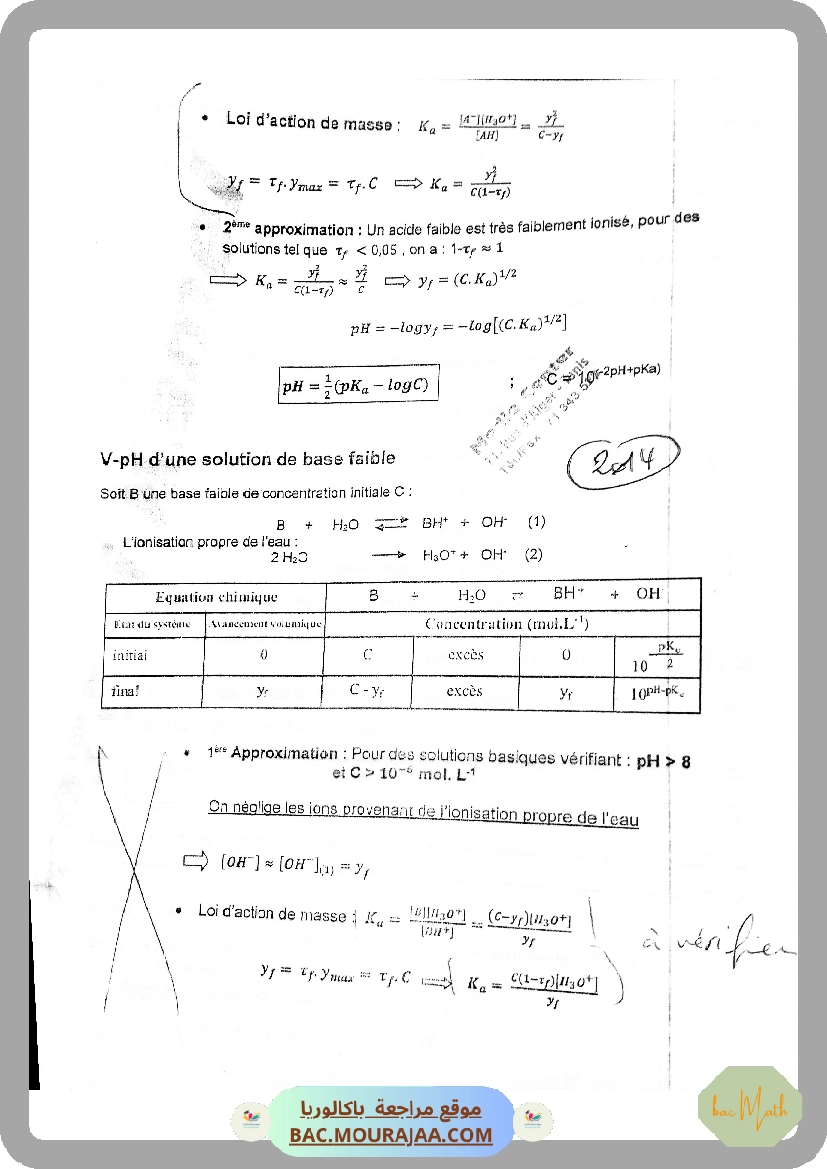 • Loi d'action de masse : Kₐ = [A⁻][H₃O⁺] / [AH] = y_f² / C−y_f
y_f = τ_f.y_max = τ_f.C ⟹ Kₐ = y_f² / C(1−τ_f)
• 2ème approximation : Un acide faible est très faiblement ionisé, pour des
solutions tel que τ_f < 0,05 , on a : 1-τ_f ≈ 1
⟹ Kₐ = y_f² / C(1−τ_f) ≈ y_f² / C ⟹ y_f = (C.Kₐ)^1/2
pH = −logy_f = −Log[(C.Kₐ)^1/2]
pH = 1/2 (pKₐ − logC) ; C ≈ 10^(-2pH+pKa)
Media Center
11, Rue d'Alger - Tunis
71 343
V-pH d'une solution de base faible
2014
Soit B une base faible de concentration initiale C :
B + H₂O ⇌ BH⁺ + OH⁻ (1)
L'ionisation propre de l'eau :
2 H₂O ⟶ H₃O⁺ + OH⁻ (2)
Equation chimique B + H₂O ⇌ BH⁺ + OH⁻
Etat du système Avancement volumique Concentration (mol.L⁻¹)
initial 0 C excès 0 10^−pKₑ/2
final y_f C - y_f excès y_f 10^pH-pKₑ
• 1ère Approximation : Pour des solutions basiques vérifiant : pH > 8
et C > 10⁻⁶ mol. L⁻¹
On néglige les ions provenant de l'ionisation propre de l'eau
⟹ [OH⁻] ≈ [OH⁻]₍₁₎ = y_f
• Loi d'action de masse : Kₐ = [B][H₃O⁺] / [BH⁺] = (C−y_f)[H₃O⁺] / y_f
à vérifier
y_f = τ_f.y_max = τ_f.C ⟹ Kₐ = C(1−τ_f)[H₃O⁺] / y_f
موقع مراجعة باكالوريا
BAC.MOURAJAA.COM
bac Math